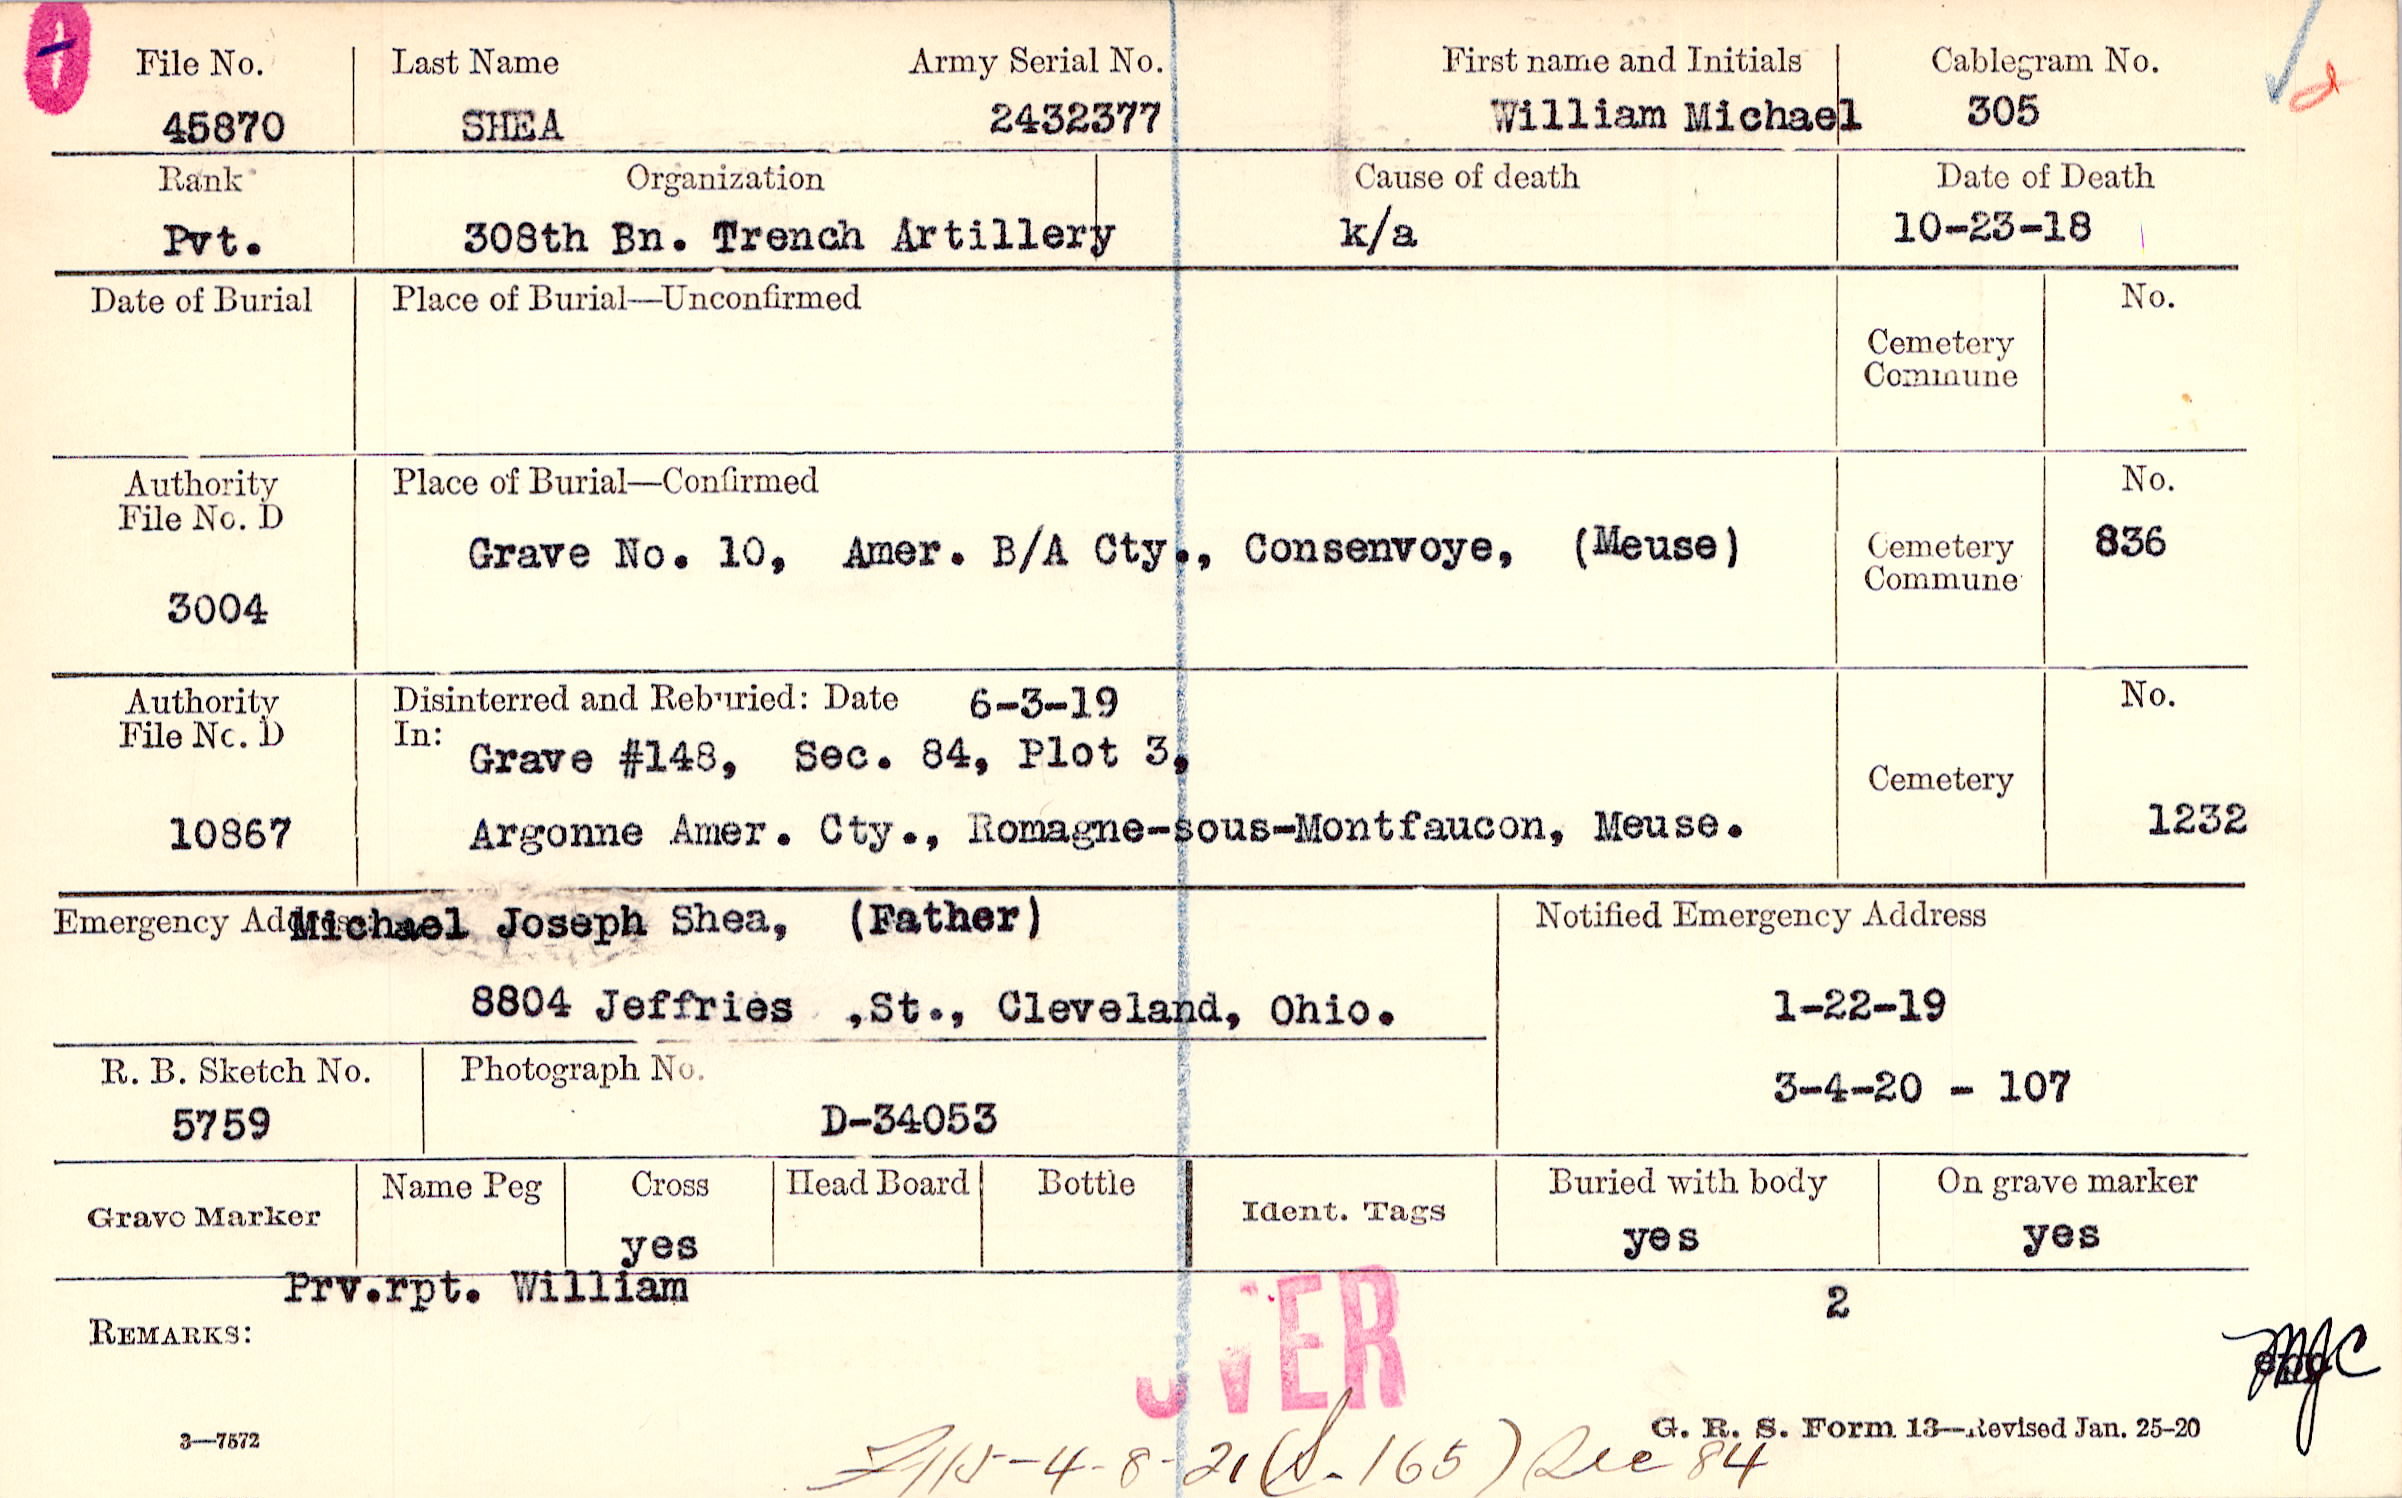 File No. Last Name Army Serial No. First name and Initials Cablegram No.
45870 SHEA 2432377 William Michael 305
Rank Organization Cause of death Date of Death
Pvt. 308th Bn. Trench Artillery k/a 10-23-18
Date of Burial Place of Burial—Unconfirmed No.
Cemetery
Commune
Authority Place of Burial—Confirmed No.
File No. D
Grave No. 10, Amer. B/A Cty., Consenvoye, (Meuse) Cemetery 836
Commune
3004
Authority Disinterred and Reburied: Date 6-3-19 No.
File No. D In:
Grave #148, Sec. 84, Plot 3,
Cemetery
10867 Argonne Amer. Cty., Romagne-sous-Montfaucon, Meuse. 1232
Emergency Address Michael Joseph Shea, (Father) Notified Emergency Address
8804 Jeffries ,St., Cleveland, Ohio. 1-22-19
R. B. Sketch No. Photograph No. 3-4-20 - 107
5759 D-34053
Name Peg Cross Head Board Bottle Buried with body On grave marker
Grave Marker Ident. Tags
yes yes yes
Prv.rpt. William 2
REMARKS:
OVER
MJC
3—7572 G. R. S. Form 13—Revised Jan. 25-20
-4-8-21 ( -165) Sec 84